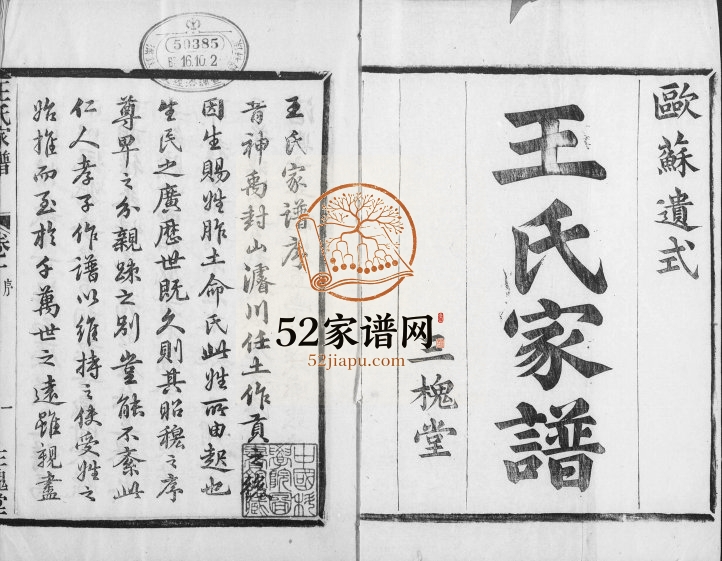 歐蘇遺式
王氏家譜
三槐堂
王氏家譜序
昔神禹封山濬川任土作貢之後
因生賜姓胙土命氏此姓所由起也
生民之廣歷世既久則其昭穆之序
尊卑之分親疎之别豈能不紊此
仁人孝子作譜以維持之使受姓之
始推而至於千萬世之遠雖親盡
王氏家譜
卷一
序
一
三槐堂
50385
16.10.2
52家谱网
52jiapu.com